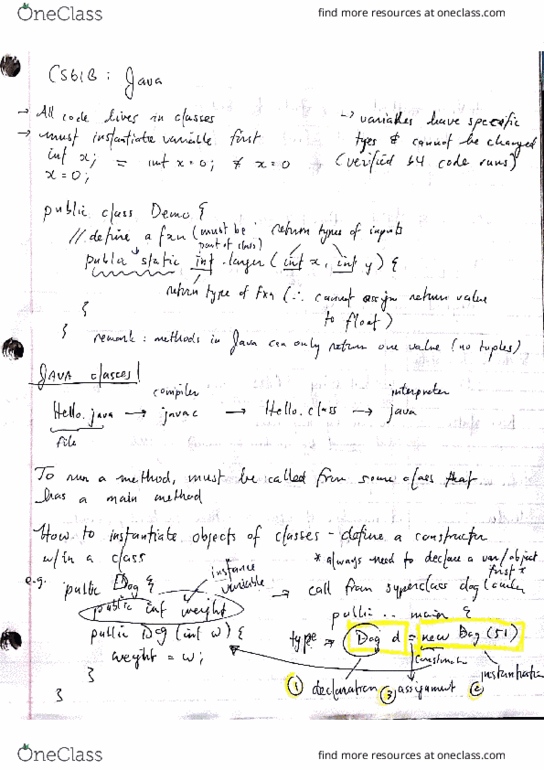 OneClass
find more resources at oneclass.com
CS61B : Java
→ All code lives in classes
→ must instantiate variable first
int x; = int x = 0; ≠ x = 0
x = 0;
→ variables have specific
types & cannot be changed
(verified b4 code runs)
public class Demo {
// define a fxn (must be part of class)
return types of inputs
public static int larger (int x, int y) {
return type of fxn (∴ cannot assign return value
to float)
}
}
remark : methods in Java can only return one value (no tuples)
JAVA classes!
compiler
interpreter
Hello.java → javac → Hello.class → java
file
To run a method, must be called from some class that
has a main method
How to instantiate objects of classes - define a constructor
w/in a class
* always need to declare a var/object
first *
e.g. public Dog {
instance
variable
public int weight
public Dog (int w) {
weight = w;
}
}
→ call from superclass dog
public .. main {
type → Dog d = new Dog (51)
instantiation
① declaration ③ assignment ②
OneClass
find more resources at oneclass.com